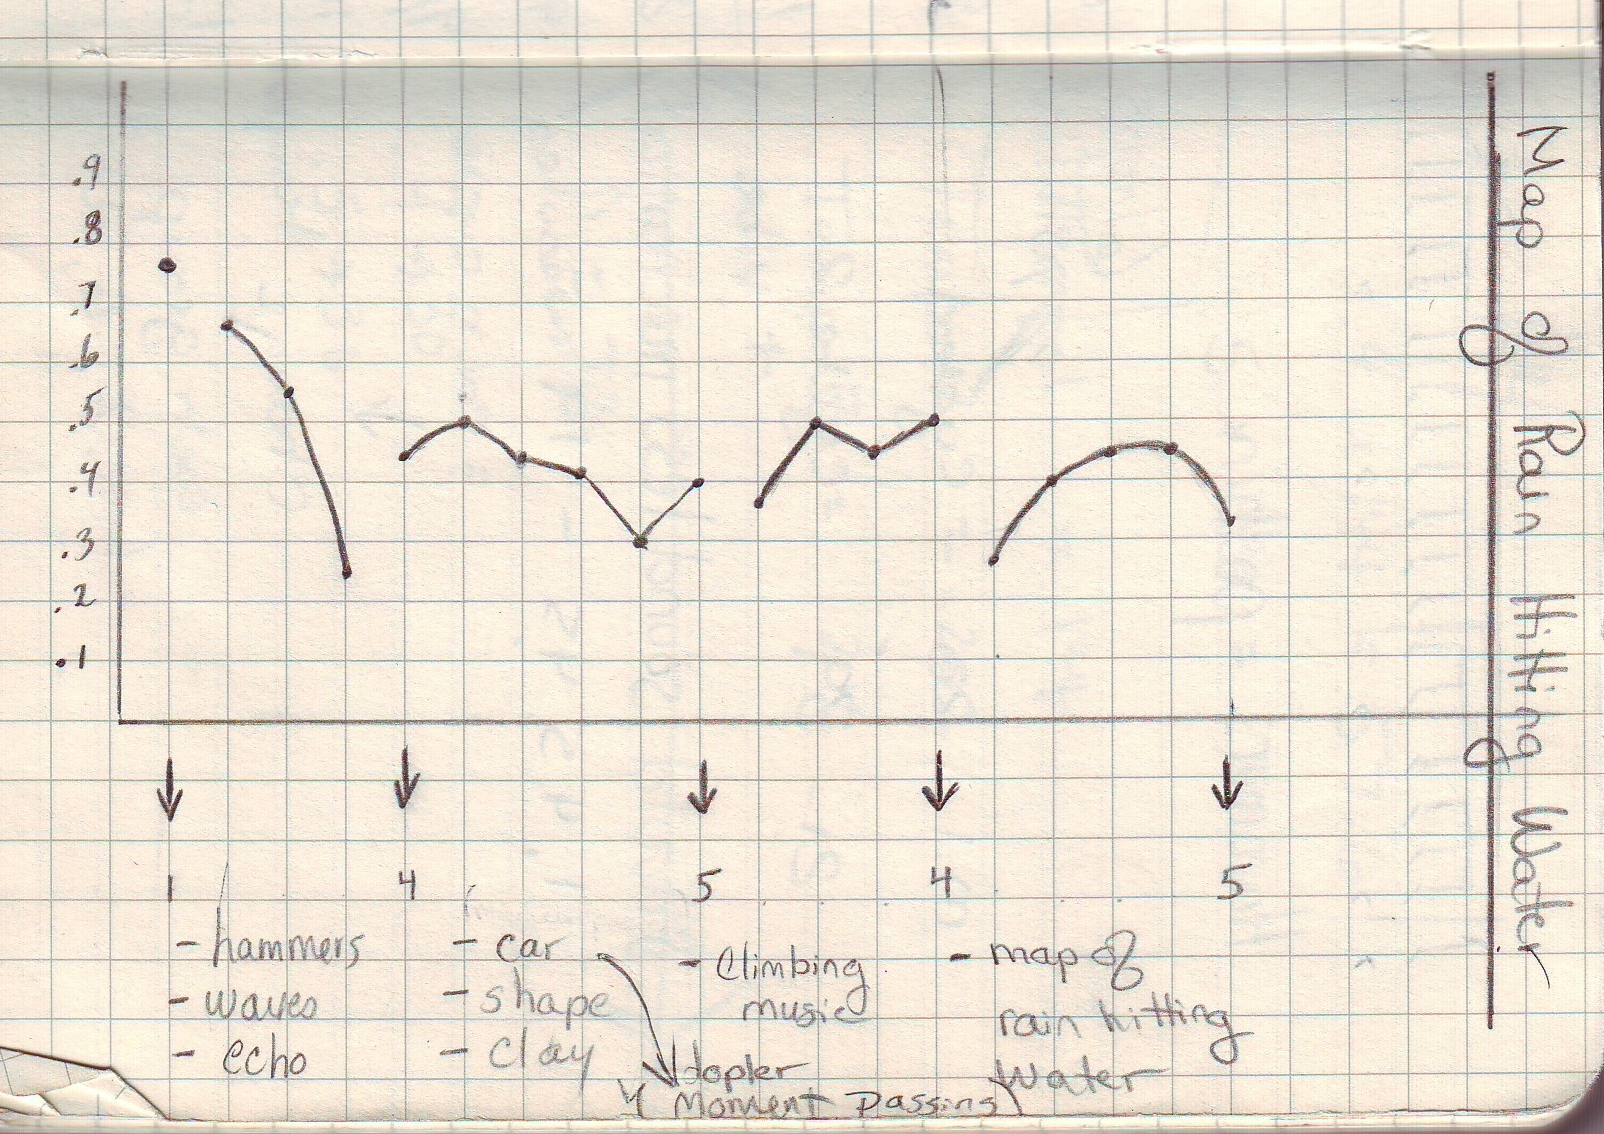 Map of Rain Hitting Water
.9
.8
.7
.6
.5
.4
.3
.2
.1
1 4 5 4 5
- hammers
- waves
- echo
- car
- shape
- clay
dopler
(Moment Passing)
- Climbing
music
- map of
rain hitting
water